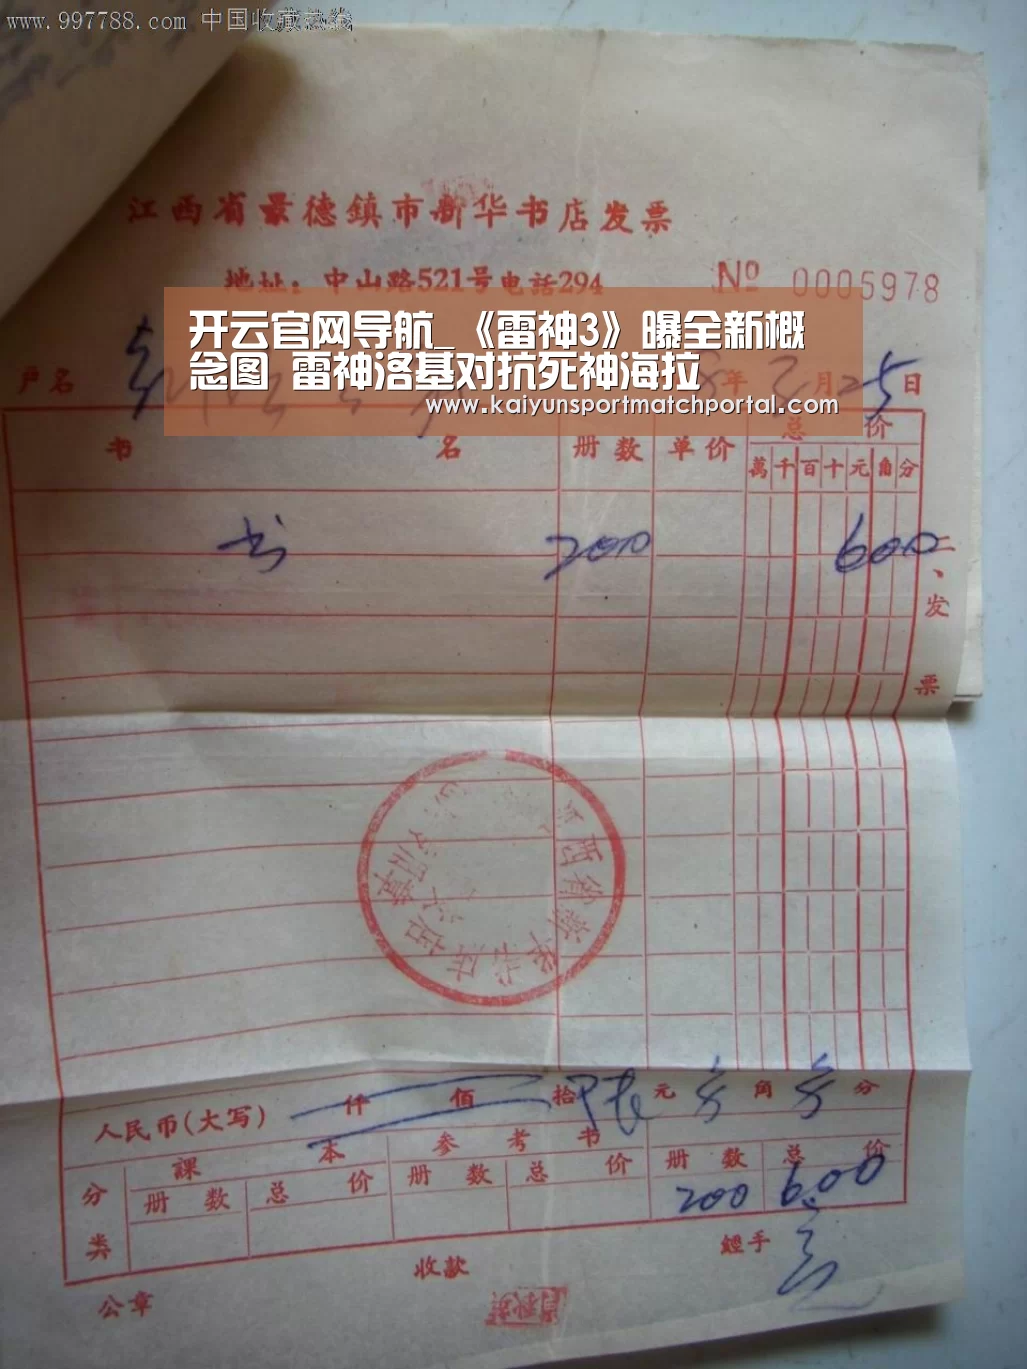 www.997788.com 中国收藏热线
江西省景德鎮市新华书店发票
地址：中山路521号电話294 № 0005978
开云官网导航_《雷神3》曝全新概
念图 雷神洛基对抗死神海拉
www.kaiyunsportmatchportal.com
户名 年 月 25 日
书 名 册数 单价 总 价
萬 千 百 十 元 角 分
书 200 600
二、发票
人民币(大写) 仟 佰 拾 元 角 分
分类 課 本 参 考 书 册 数 总 价
册 数 总 价 册 数 总 价 200 6.00
公章 收款 經手